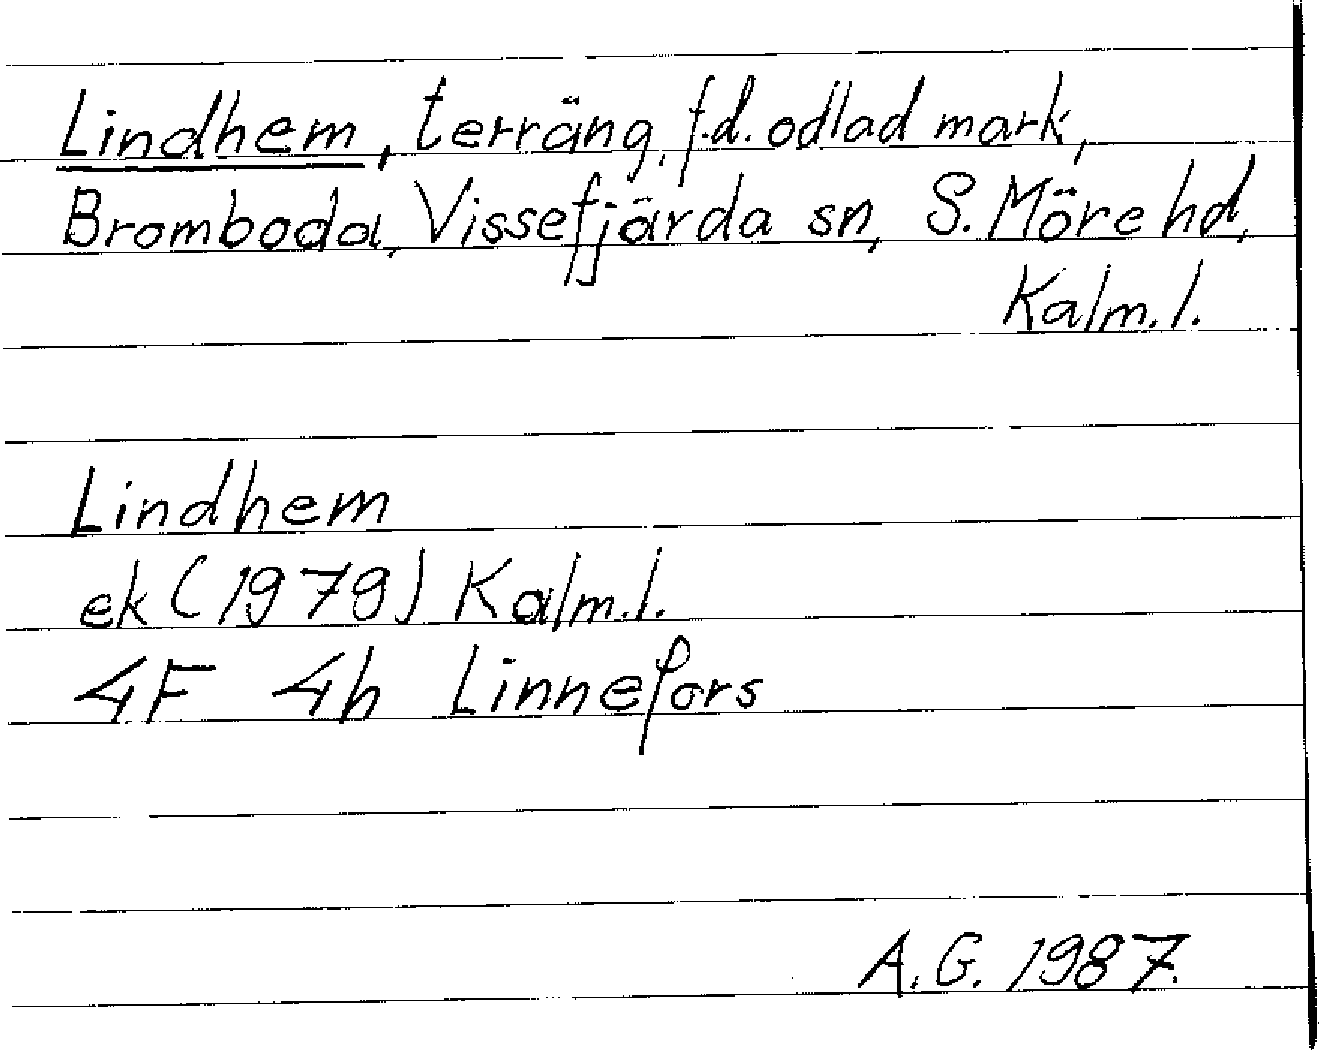 Lindhem, terräng, f.d. odlad mark,
Bromboda, Vissefjärda sn, S. Möre hd,
Kalm.l.
Lindhem
ek (1979) Kalm.l.
4F 4h Linnefors
A.G. 1987.